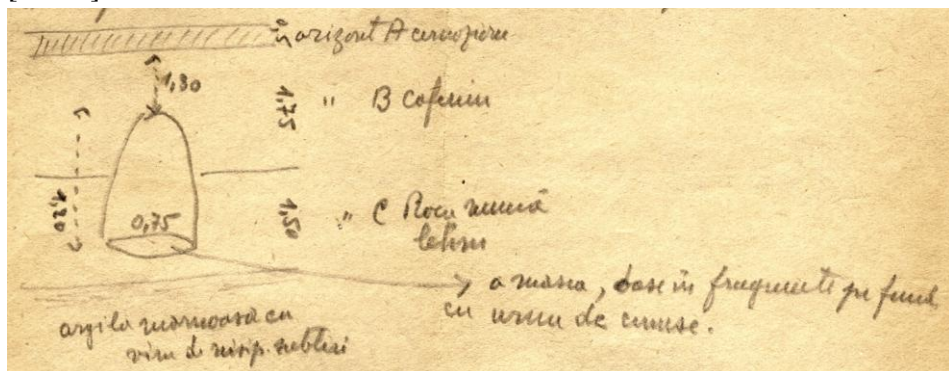 orizont A cernoziom
1,30
1,75
" B cafeniu
1,20
0,75
1,50
" C Roca mumă
a masca, oase în fragmente pe fund
cu urme de cenuse.
argila marnoasă cu
vine de nisip